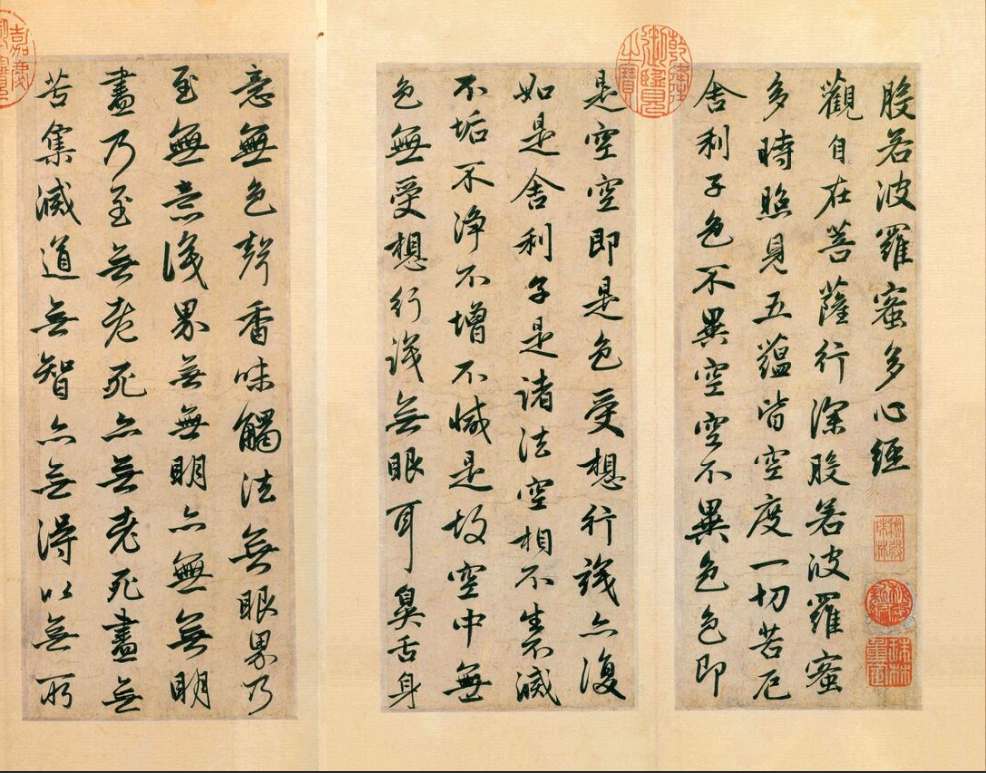 般若波羅蜜多心經
觀自在菩薩行深般若波羅蜜
多時照見五蘊皆空度一切苦厄
舍利子色不異空空不異色色即
是空空即是色受想行識亦復
如是舍利子是諸法空相不生不滅
不垢不淨不增不減是故空中無
色無受想行識無眼耳鼻舌身
意無色聲香味觸法無眼界乃
至無意識界無無明亦無無明
盡乃至無老死亦無老死盡無
苦集滅道無智亦無得以無所
乾隆御覽之寶
秘殿珠林
秘殿新編
珠林重定
嘉慶